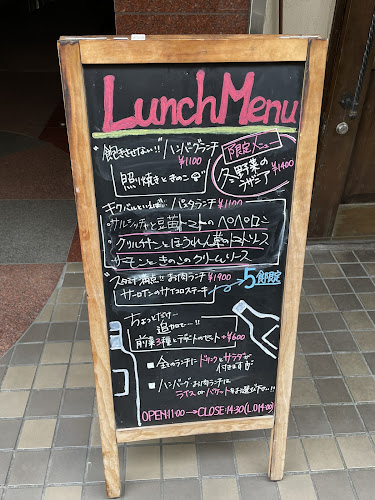 Lunch Menu
"飽きさせない!!" ハンバーグランチ
¥1100
照り焼きときのこ
限定メニュー
冬野菜の
ラザニア
¥1400
キクバルといえば… パスタランチ ¥1100
・サルシッチャと豆苗トマトのペペロンチーノ
・グリルチキンとほうれん草のトマトソース
サーモンときのこのクリームソース
満点!! お肉ランチ ¥1900
5食限定
サーロインのサイコロステーキ
ちょっとだけ…
追加で…!!
前菜3種とデザートのセット +¥600
■ 全てのランチにドリンクとサラダが
付きますが
■ ハンバーグ・お肉ランチに
ライス or バケットをお選び下さい!!
OPEN 11:00 → CLOSE 14:30 (L.O 14:00)